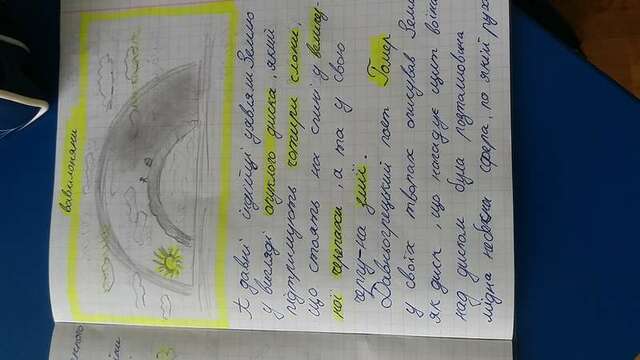 вавилоняни
А давні індійці уявляли Землю
у вигляді опуклого диска, який
підтримують чотири слони,
що стоять на спині у велику-
чої черепахи, а та у свою
чергу-на змії.
Давньогрецький поет Гомер
у своїх творах описував Земл
як диск, що нагадує щит воїна
над диском була розташована
мідна небесна сфера, по якій руха